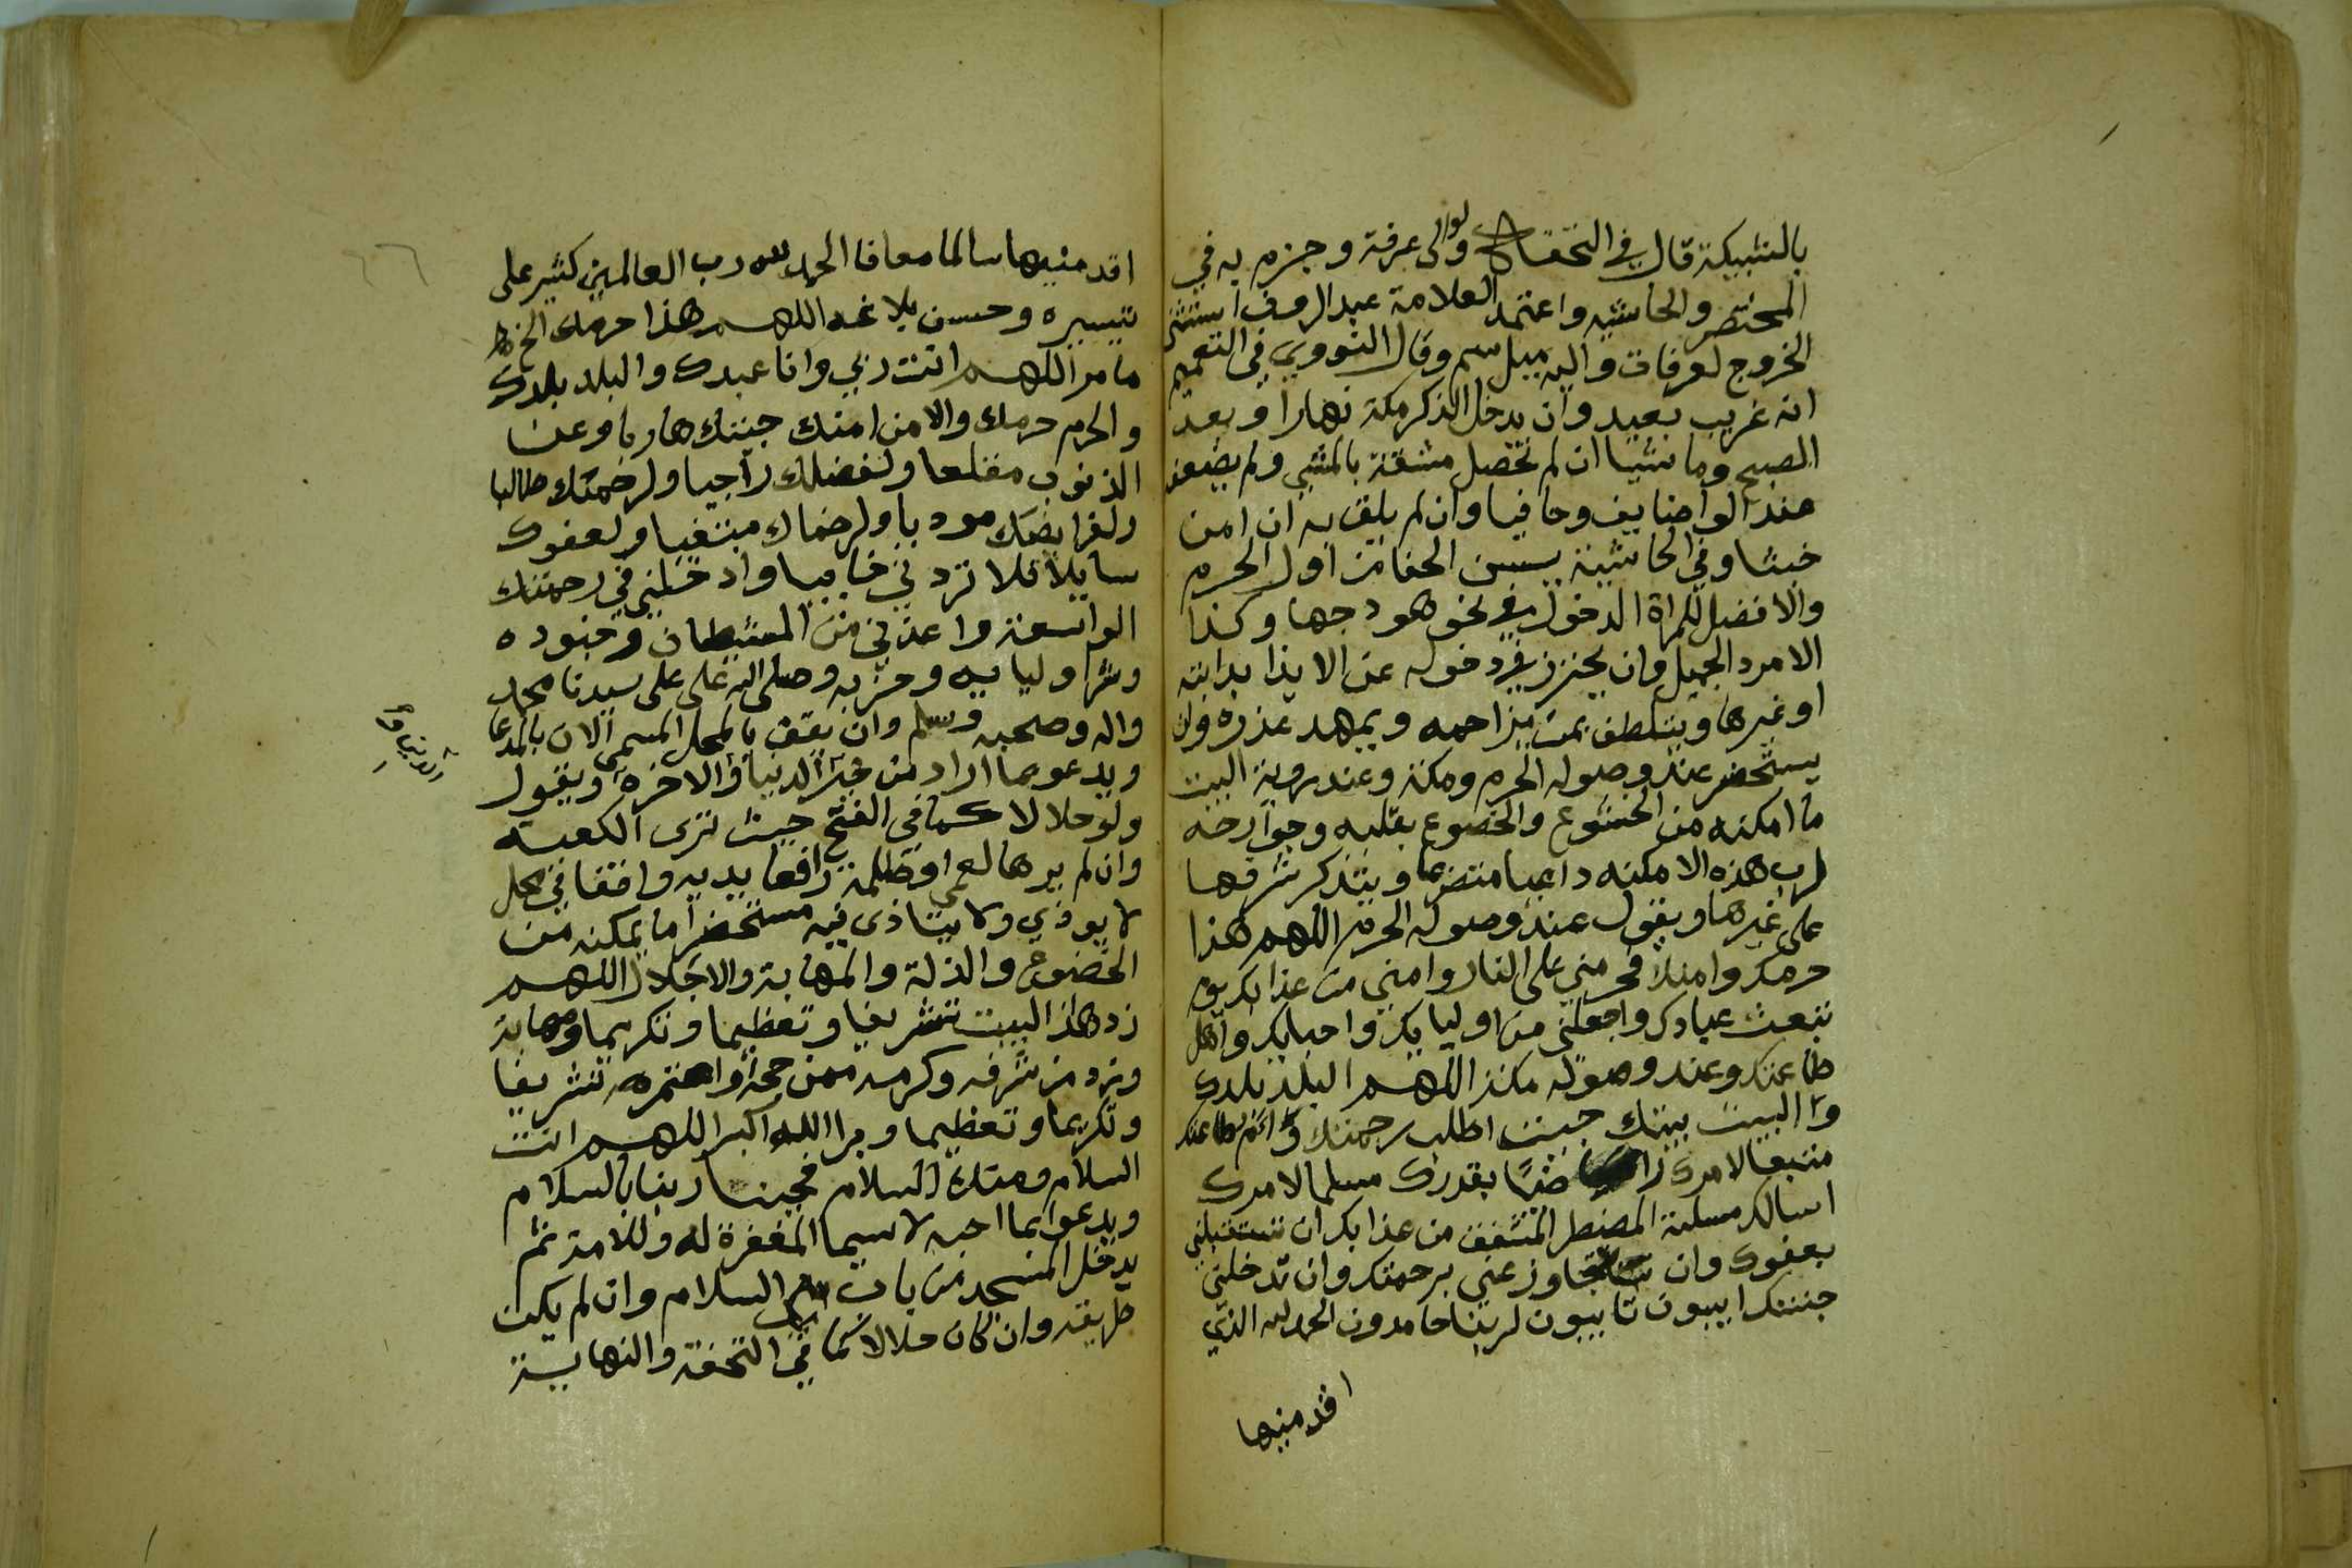 بالشبيكة قال في التحفة ولو الى عرفة وجزم به في
المختصر والحاشيه واعتمد العلامة عبد الروف استثنى
الخروج لعرفات واليه ميل سم وقال النووي في التعميم
انه غريب بعيد وان يدخل الذكر مكة نهارا وبعد
الصبح وماشيا ان لم تحصل مشقة بالمشي ولم يضعف
عند الوضايف وحافيا وان لم يلق به ان امن
خبثا وفي الحاشية يسن الحفا من اول الحرم
والافضل للمراة الدخول في نحو هودجها وكذا
الامرد الجميل وان يحترز في دخوله عن الايذا بدابته
او غيرها ويتلطف بمن يزاحمه ويمهد عذره وان
يستحضر عند وصوله الحرم ومكة وعند روية البيت
ما امكنه من الخشوع والخضوع بقلبه وجوارحه
لرب هذه الامكنه داعيا متضرعا ويتذكر شرفها
على غيرها ويقول عند وصوله الحرم اللهم هذا
حرمك وامنك فحرمني على النار وامني من عذابك يوم
تبعث عبادك واجعلني من اوليايك واحبابك واهل
طاعتك وعند وصوله مكة اللهم البلد بلدك
والبيت بيتك جيت اطلب رحمتك والزم طاعتك
متبعا لامرك راضيا بقدرك مسلما لامرك
اسالك مسلة المضطر المشفق من عذابك ان تستقبلني
بعفوك وان تتجاوز عني برحمتك وان تدخلني
جنتك ايبون تايبون لربنا حامدون الحمد لله الذي
اقدمنيها
اقدمنيها سالما معافا الحمد لله رب العالمين كثير على
تيسيره وحسن بلاغه اللهم هذا حرمك الخ
ما مر اللهم انت ربي وانا عبدك والبلد بلدك
والحرم حرمك والامن امنك جيتك هاربا وعن
الذنوب مقلعا ولفضلك راجيا ولرحمتك طالبا
ولفرايضك موديا ولرضاك مبتغيا ولعفوك
سايلا فلا تردني خايبا وادخلني في رحمتك
الواسعة واعذني من الشيطان وجنوده
وشر اوليايه وحزبه وصلى الله على على سيدنا محمد
واله وصحبه وسلم وان يقف بالمحل المسمى الان بالمدعا
ويدعو بما اراد من خير الدنيا والاخرة ويقول
ولو حلالا كما في الفتح حيث ترى الكعبة
وان لم يرها لعمى او ظلمة رافعا يديه واقفا في محل
لا يوذي ولا يتاذى فيه مستحضرا ما يمكنه من
الخضوع والذلة والمهابة والاجلال اللهم
زد هذا البيت تشريفا وتعظيما وتكريما ومهابة
وزد من شرفه وكرمه ممن حجه او اعتمره تشريفا
وتكريما وتعظيما وبرا الله اكبر اللهم انت
السلام ومنك السلام فحينا ربنا بالسلام
ويدعو بما احب لاسيما المغفرة له وللامة ثم
يدخل المسجد من باب السلام وان لم يكن
طريقه وان كان حلالا كما في التحفة والنهاية